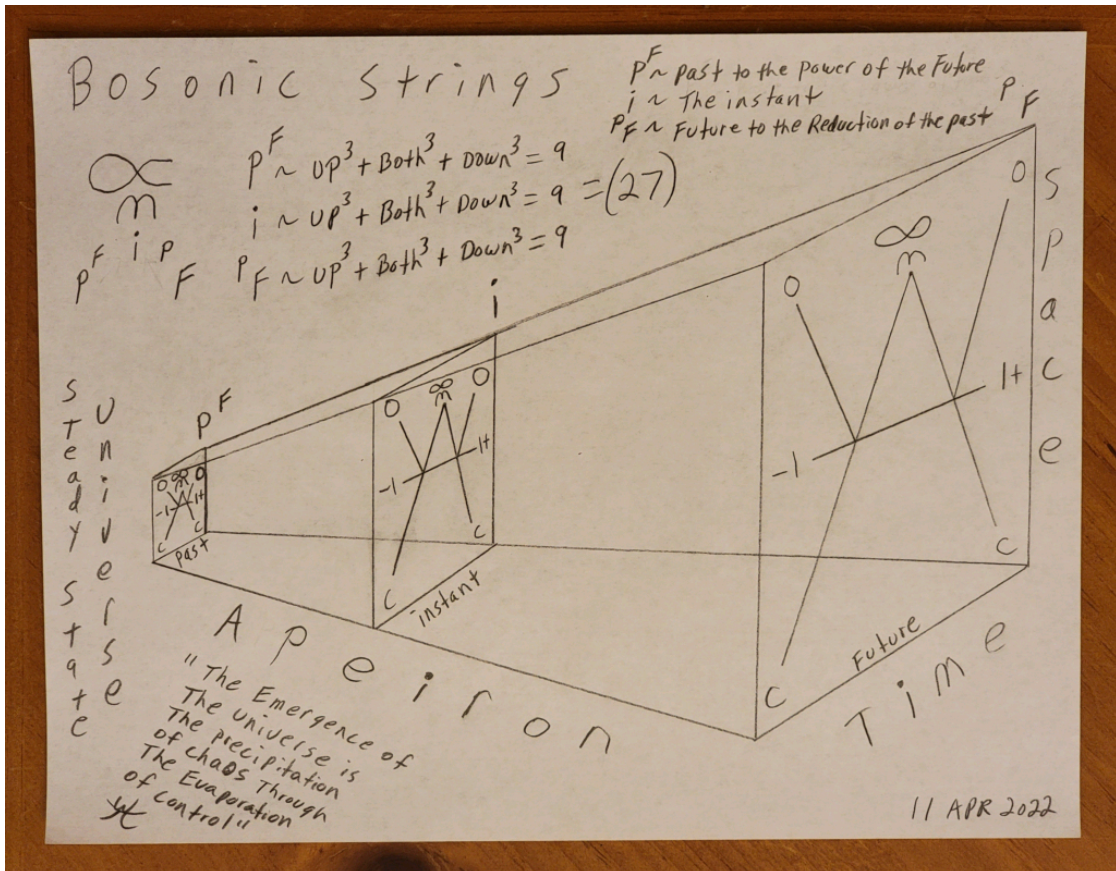 Bosonic Strings
P^F ~ Past to the Power of the Future
i ~ The instant
P_F ~ Future to the Reduction of the past
P^F ~ UP³ + Both³ + Down³ = 9
i ~ UP³ + Both³ + Down³ = 9 = (27)
P_F ~ UP³ + Both³ + Down³ = 9
∝
m
P^F i P_F
P_F
i
P^F
Space
0 ∞ 0
m
-1 1+
C C
Future
0 ∞ 0
m
-1 1+
C C
instant
0 ∞ 0
m
-1 1+
C C
past
Steady State
Universe
Apeiron
Time
"The Emergence of
The universe is
The precipitation
of chaos Through
The Evaporation
of control"
11 APR 2022